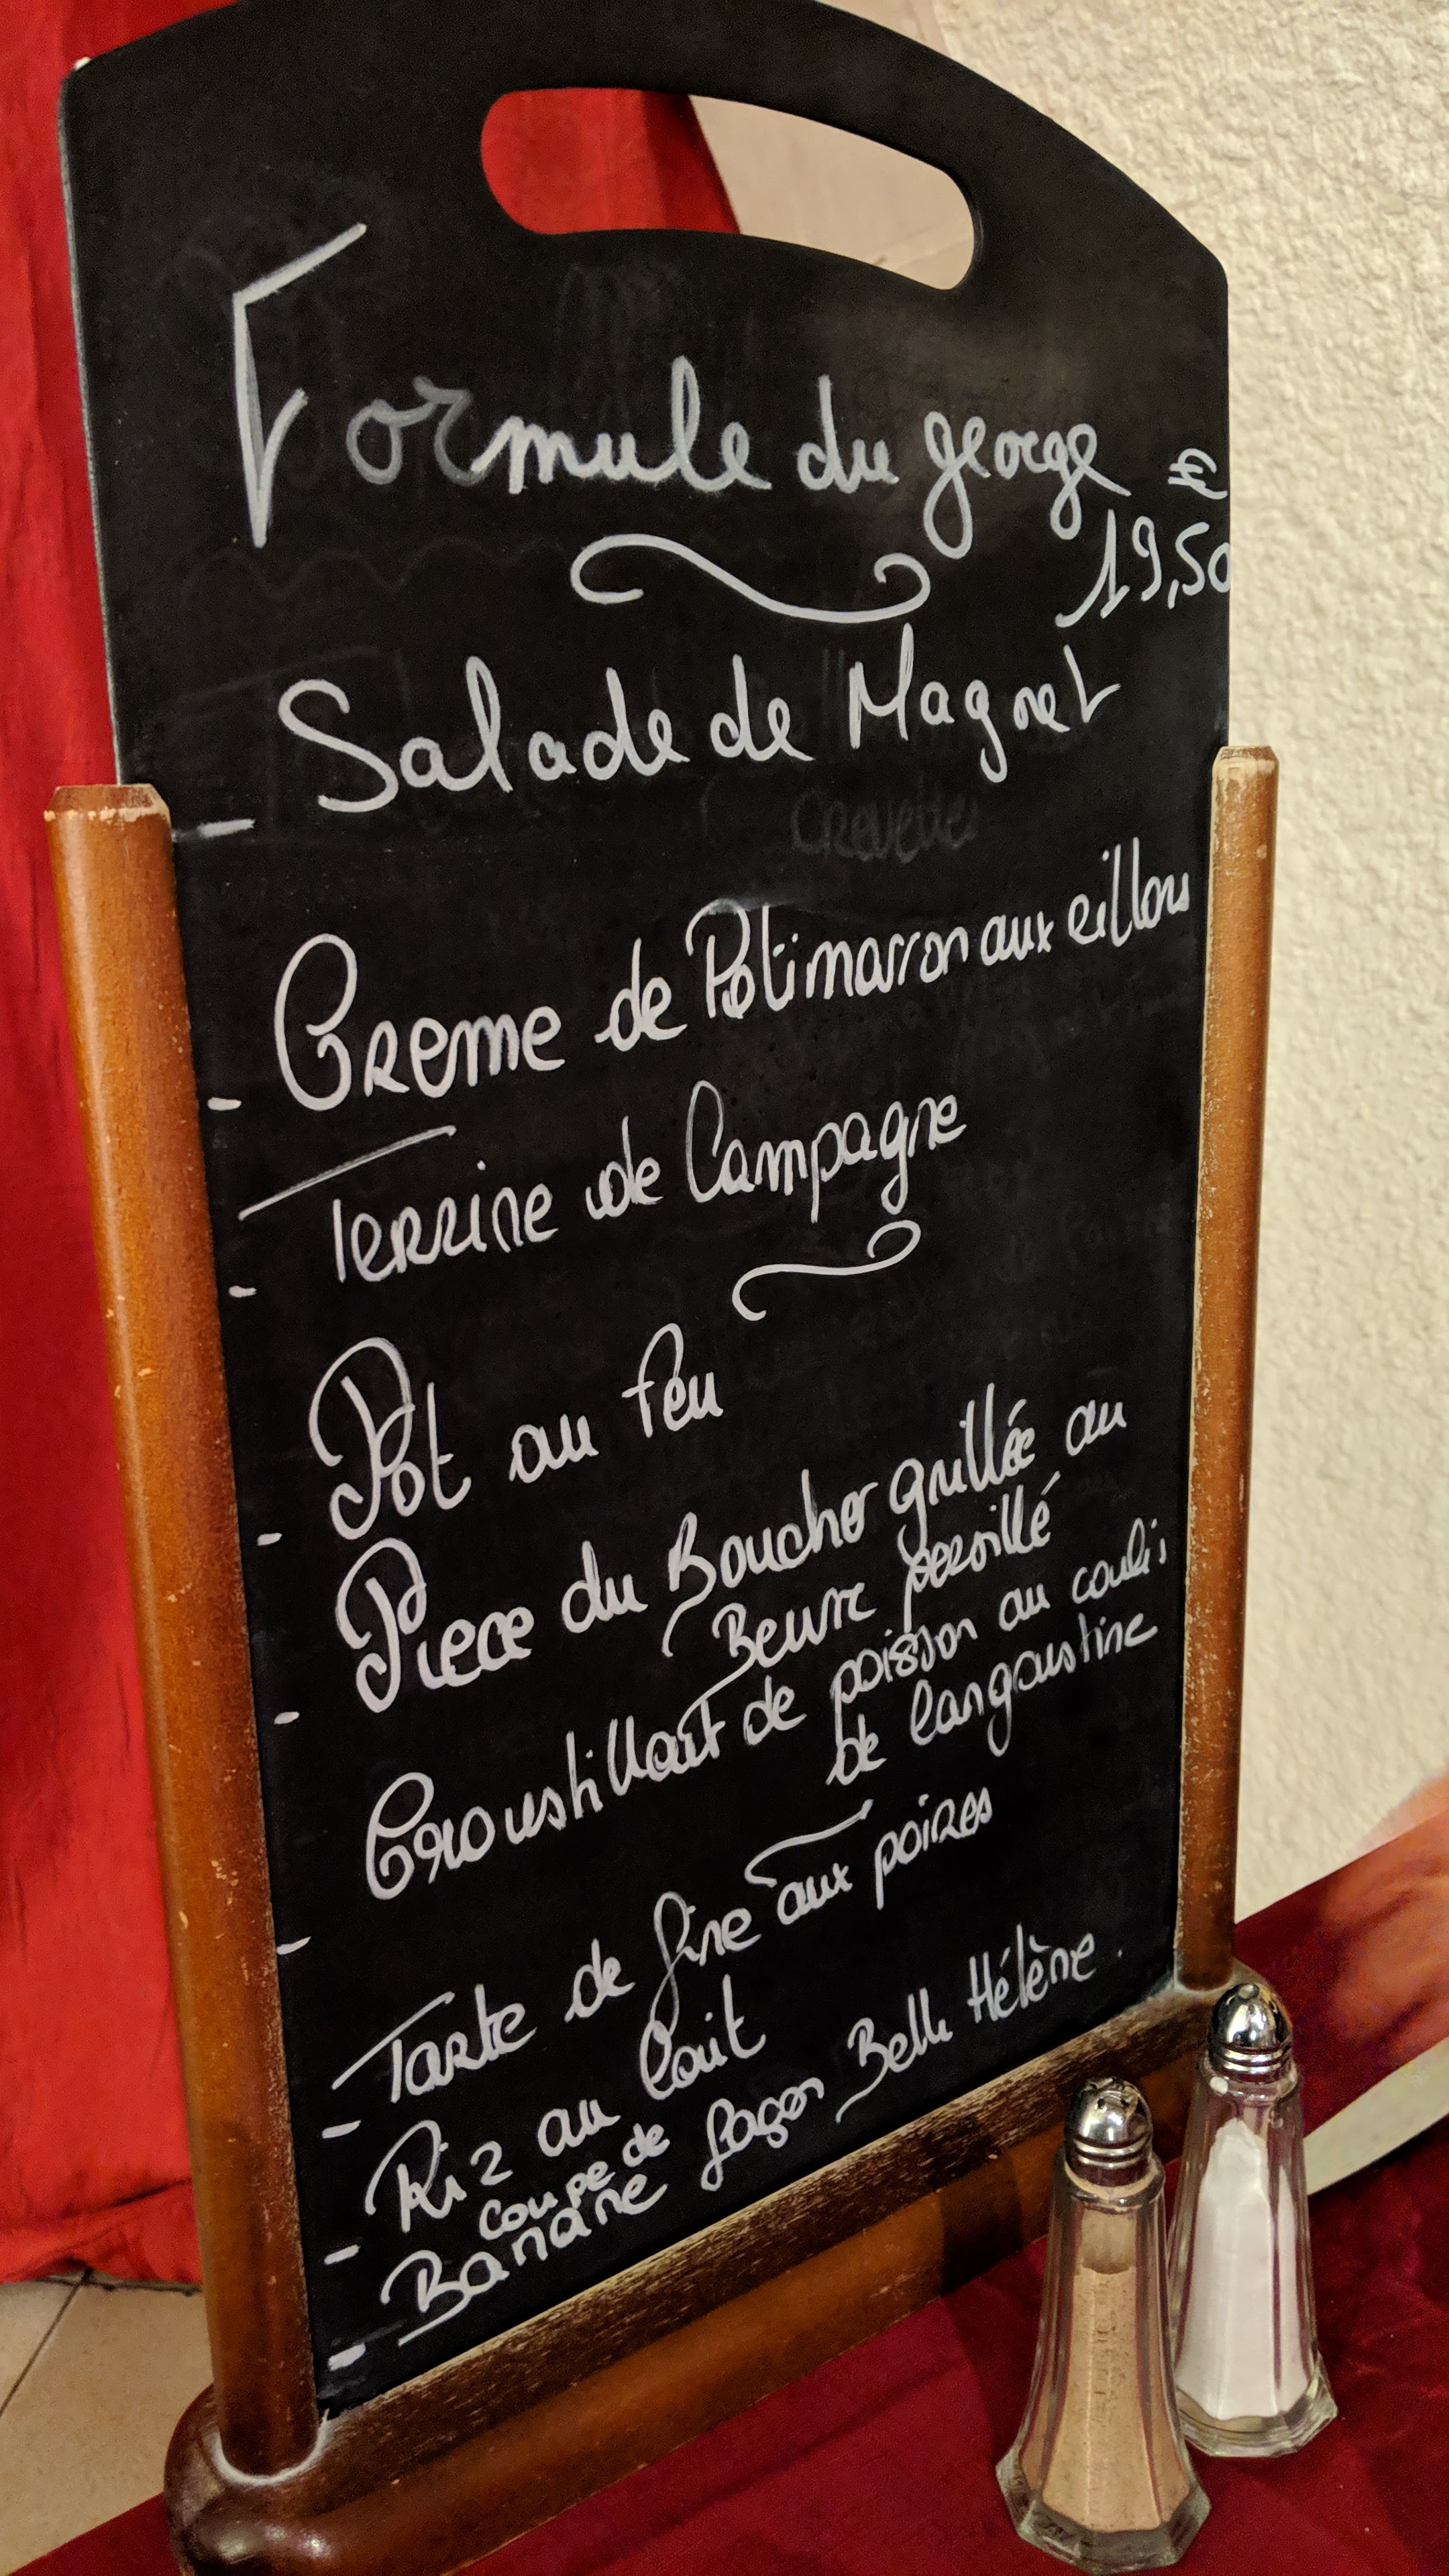 Formule du george
€
19,50
- Salade de Magret
Crevettes
- Creme de Potimarron aux eillons
- Terrine de Campagne
- Pot au feu
- Piece du Boucher grillée au
Beurre persillé
- Croustillant de poisson au coulis
de langoustine
- Tarte de fine aux poires
- Riz au lait
Coupe de
- Banane façon Belle Hélène.